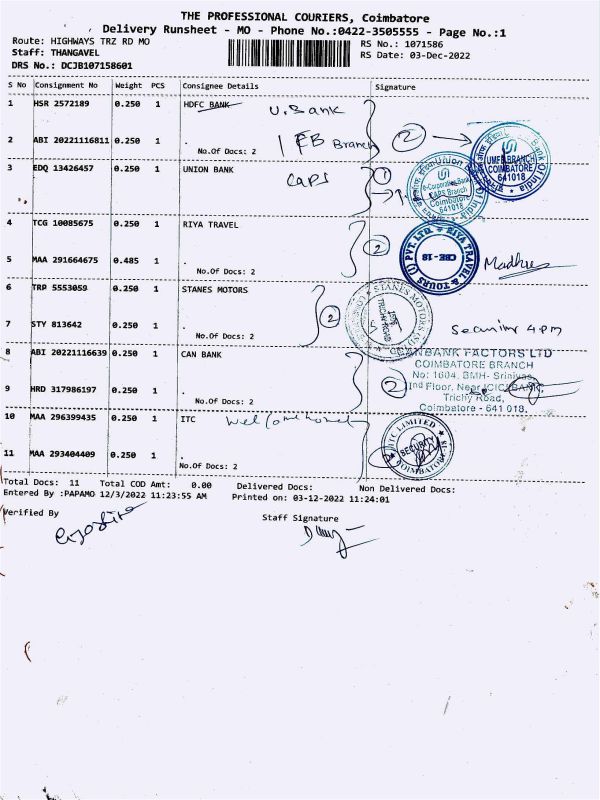 THE PROFESSIONAL COURIERS, Coimbatore
Delivery Runsheet - MO - Phone No.:0422-3505555 - Page No.:1
Route: HIGHWAYS TRZ RD MO
RS No.: 1071586
Staff: THANGAVEL
RS Date: 03-Dec-2022
DRS No.: DCJB107158601
S No Consignment No Weight PCS Consignee Details Signature
1 HSR 2572189 0.250 1 HDFC BANK U.Bank
2 ABI 20221116811 0.250 1 . Branch
No.Of Docs: 2
2
UMFB BRANCH
COIMBATORE
641018
Bank Of India
3 EDQ 13426457 0.250 1 UNION BANK CAPS
1
Union
e-Corporation Bank
CAPS Branch
Coimbatore
641018
of India
4 TCG 10085675 0.250 1 RIYA TRAVEL
2
RIYA TRAVEL & TOURS (I) PVT. LTD.
CBE-18
Madhu
5 MAA 291664675 0.485 1 .
No.Of Docs: 2
6 TRP 5553059 0.250 1 STANES MOTORS
2
STANES MOTORS
TRICHY ROAD
7 STY 813642 0.250 1 .
No.Of Docs: 2
4 PM
8 ABI 20221116639 0.250 1 CAN BANK
CANBANK FACTORS LTD
COIMBATORE BRANCH
No: 1604, BMH- Srinivas
IInd Floor, Near ICICI BANK,
Trichy Road,
Coimbatore - 641 018.
2
9 HRD 317986197 0.250 1 .
No.Of Docs: 2
10 MAA 296399435 0.250 1 ITC
ITC LIMITED
SECURITY
COIMBATORE
11 MAA 293404409 0.250 1 .
No.Of Docs: 2
Total Docs: 11 Total COD Amt: 0.00 Delivered Docs: Non Delivered Docs:
Entered By :PAPAMO 12/3/2022 11:23:55 AM Printed on: 03-12-2022 11:24:01
Verified By
Staff Signature